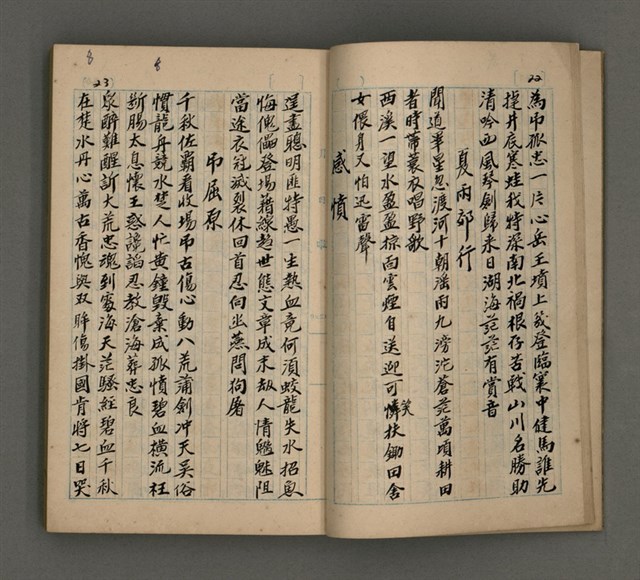 22
為吊孤忠一片心岳王墳上幾登臨寰中健馬誰先
捉井底寒蛙我特深南北禍根存苦戰山川名勝助
清吟西風琴劍歸來日湖海茫茫有賞音
夏雨郊行
聞道畢星忽渡河十朝淫雨九滂沱蒼茫萬頃耕田
者時帶蓑衣唱野歌
西溪一望水盈盈掠面雲煙自送迎可憐扶鋤田舍
笑
女偎月又怕迅雷聲
感憤
逞盡聰明匪特愚一生熱血竟何須蛟龍失水招魚
悔傀儡登場藉線趨世態文章成末劫人情魑魅阻
當途衣冠滅裂休回首忍向出燕問狗屠
吊屈原
千秋佐霸看收場吊古傷心動八荒蒲劍冲天吳俗
慣龍舟競水楚人忙黃鐘毀棄成孤憤碧血橫流枉
斷腸太息懷王惑讒謟忍教滄海葬忠良
眾醉難醒訴大荒忠魂到處海天茫騷經碧血千秋
在楚水丹心萬古香愧與双眸傷掛國肯將七日哭
23